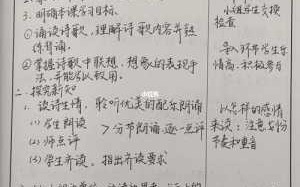 3. 明确本课学习目标
小组互相交换
检查
①诵读诗歌,理解诗歌内容并能
练背诵
导入环节学生与
情高,积极参与
②掌握诗歌中联想、想象的表现手
法,并能学以致用。
二. 探究新知
1. 读诗生情,聆听优美的配乐朗诵
以怎样的感情
(1) 学生朗读
>分节朗诵,逐一点评
来读;注意与物
(2) 师点评
节奏和重音
(3) 学生齐读,指出齐读要求
小红书